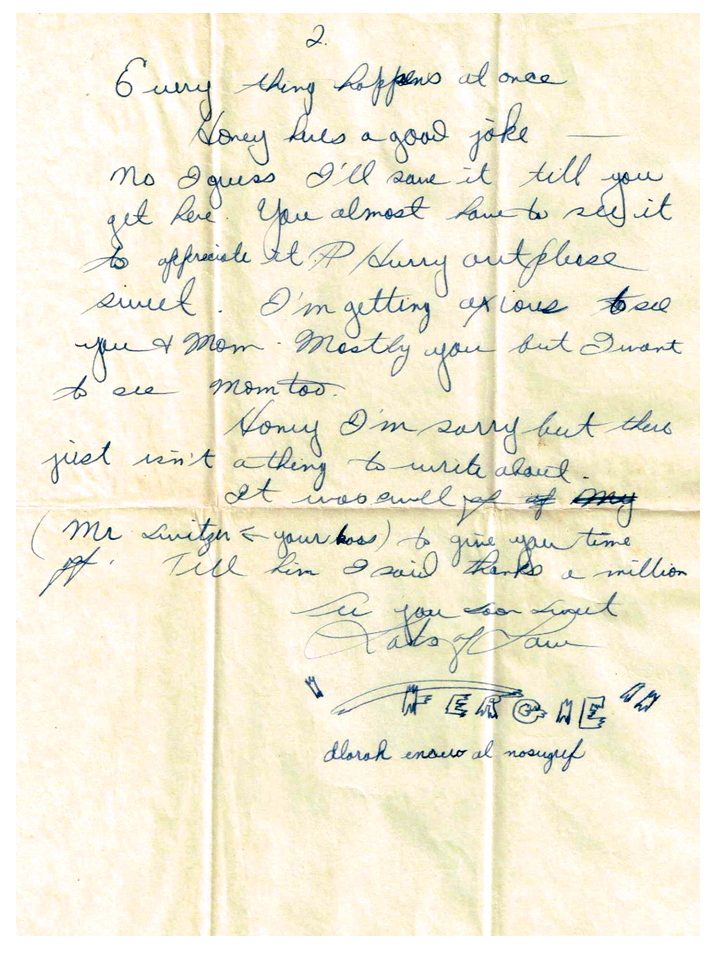 2.
Every thing happens at once
Honey hers a good joke —
No I guess I'll save it till you
get here. You almost have to see it
to appreciate it Hurry out please
sweet. I'm getting axious to see
you & Mom. Mostly you but I want
to see Mom too.
Honey I'm sorry but there
just isn't a thing to write about.
It was swell of of my
(Mr. Switzer ← your boss) to give you time
off. Tell him I said thanks a million
See you soon sweet
Lots of Love
"FERGIE"
dlorah al nosugref